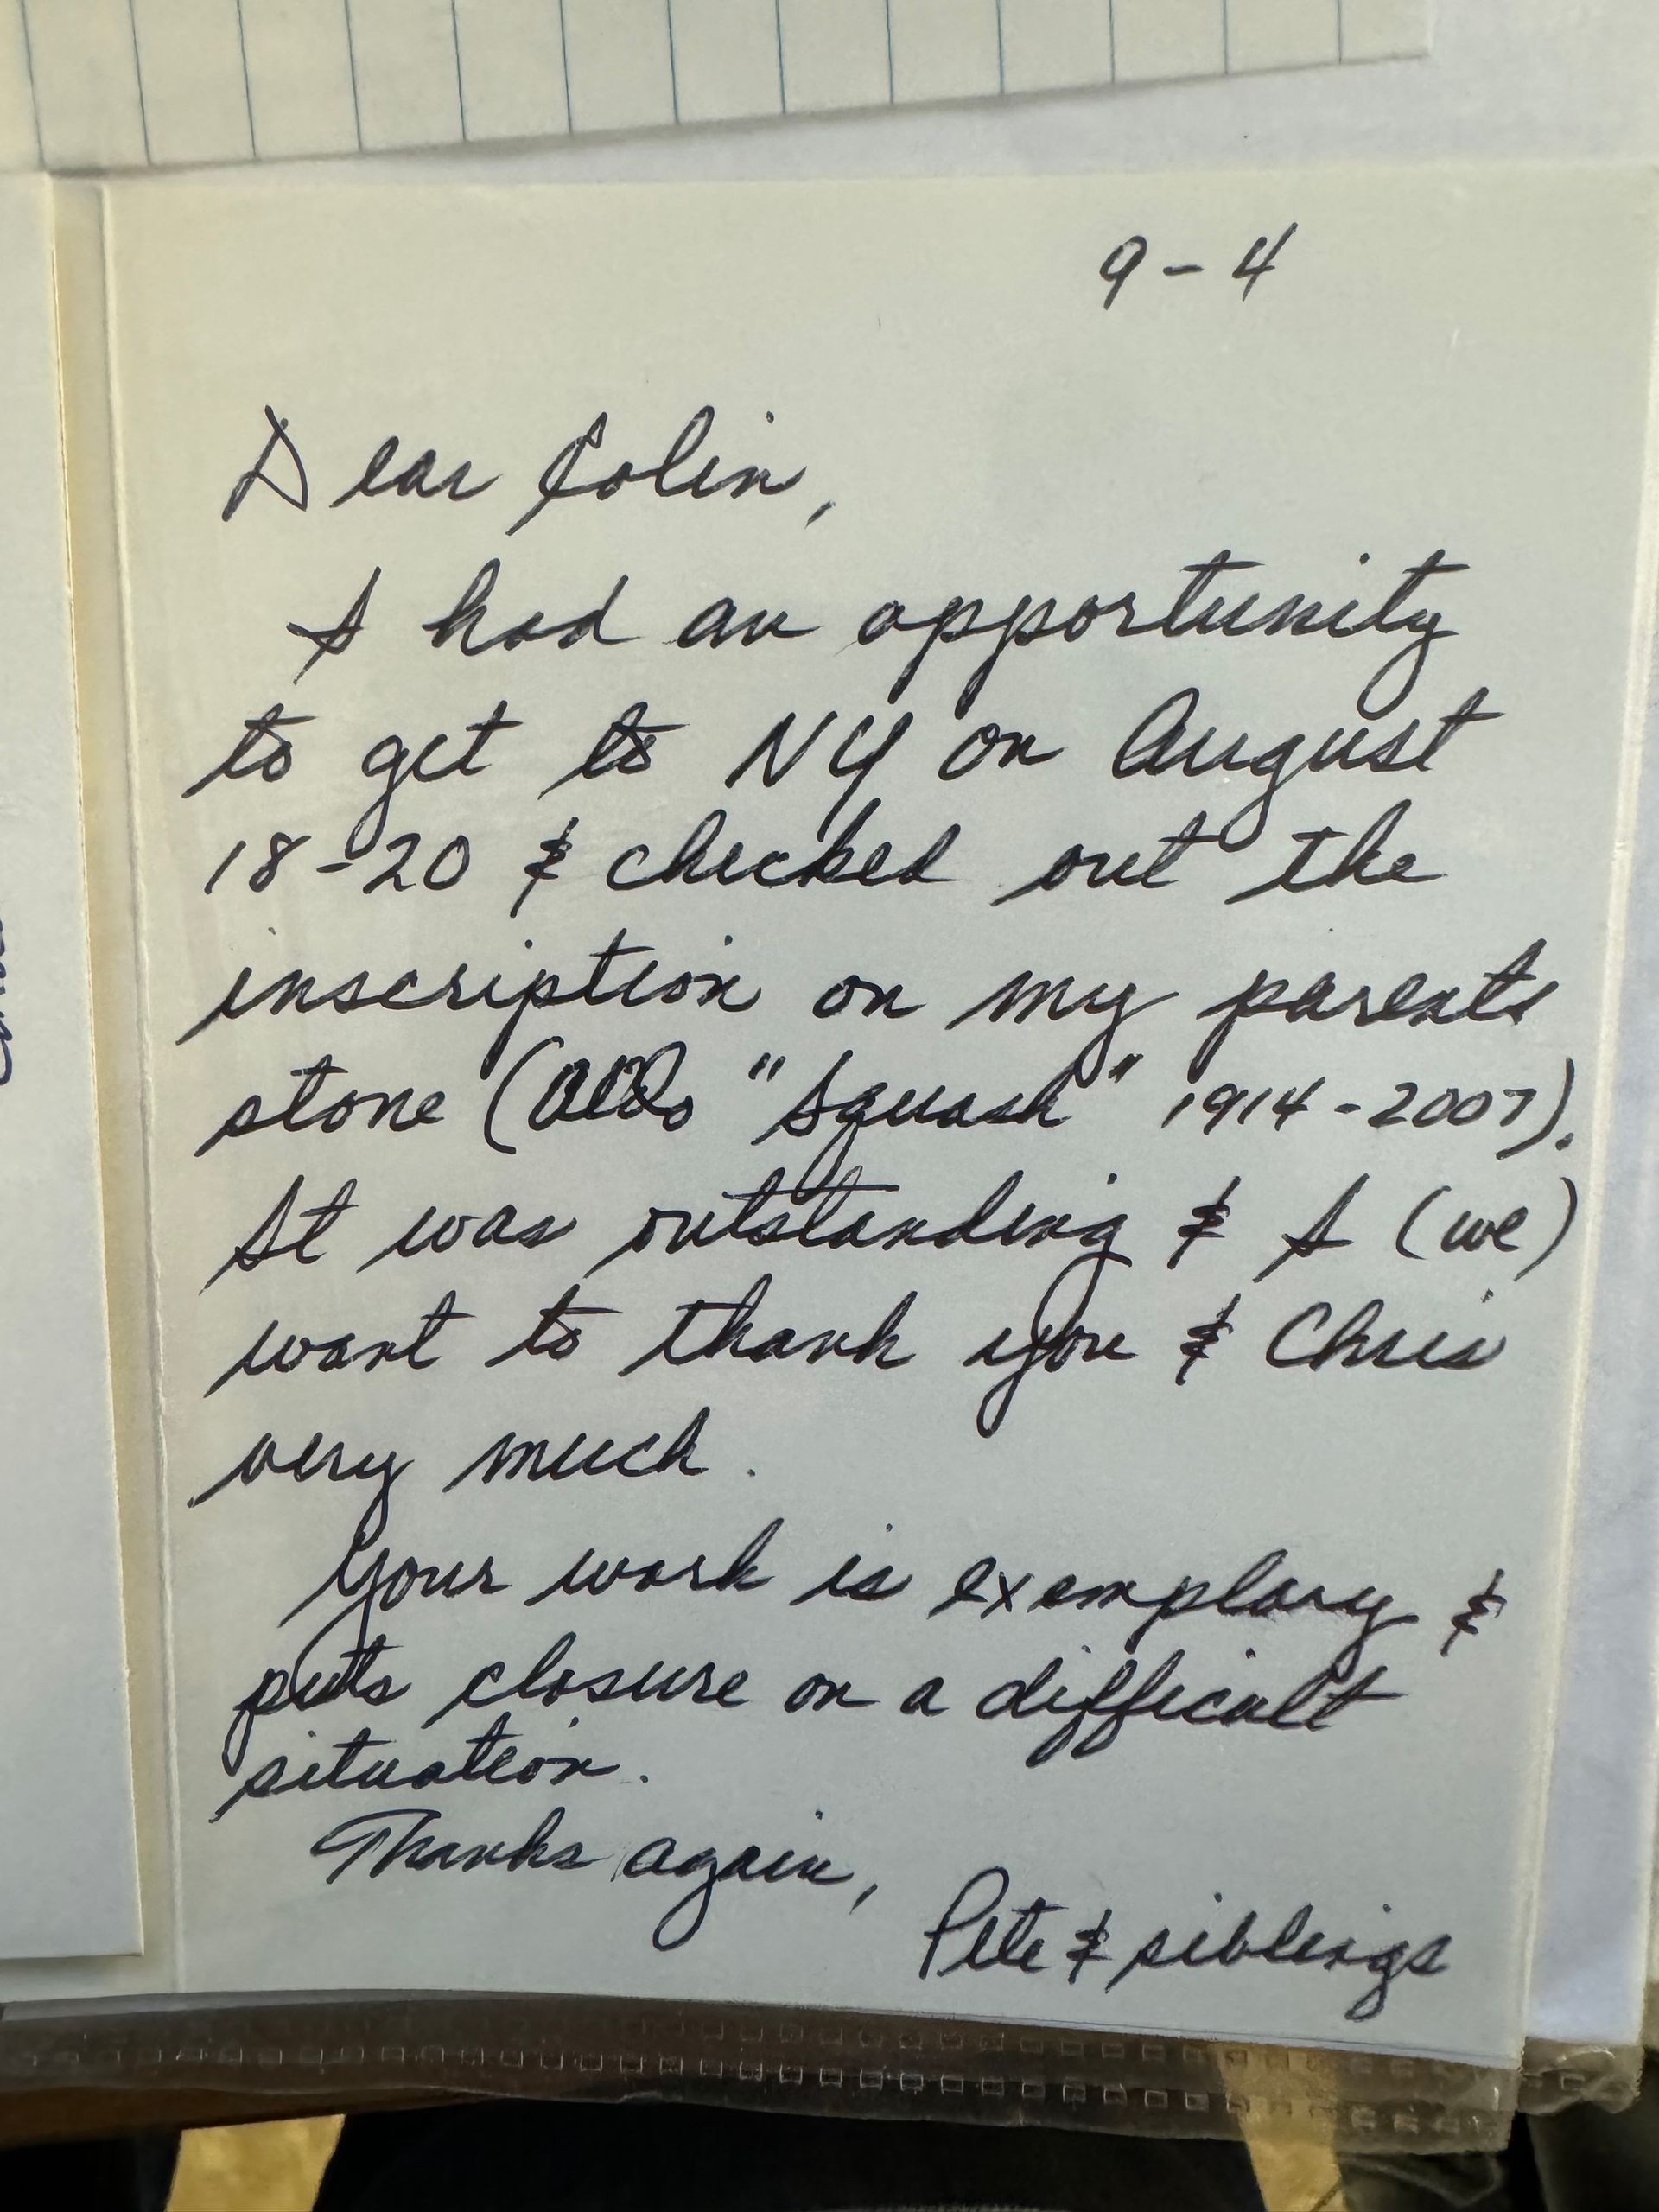 9-4
Dear Colin,
I had an opportunity
to get to NY on August
18-20 & checked out the
inscription on my parents
stone (Aldo "Squash" 1914-2007).
It was outstanding & I (we)
want to thank you & Chris
very much.
Your work is exemplary &
puts closure on a difficult
situation.
Thanks again,
Pete & siblings